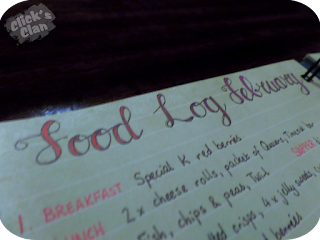 Click's Clan
Food Log February
1. BREAKFAST Special K red berries
LUNCH 2x cheese rolls, packet of
fish, chips & peas,
crisps, 4x jelly
berries